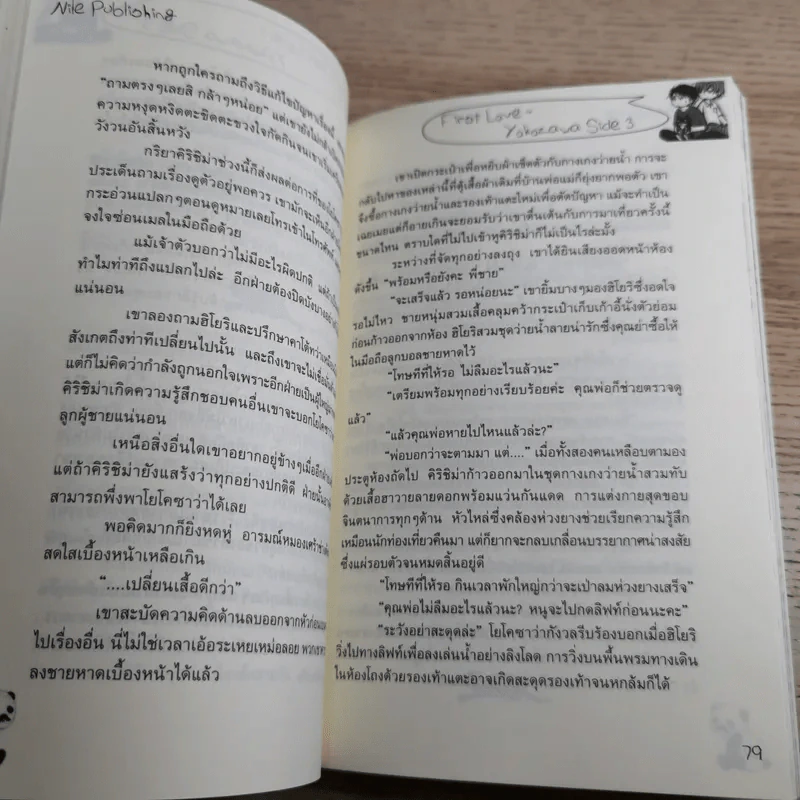 Nile Publishing
หากถูกใครถามถึงวิธีแก้ไขปัญหาเรื่องนี้
"ถามตรงๆเลยสิ กล้าๆหน่อย" แต่เขายังไม่กล้า
ความหงุดหงิดตะขิดตะขวงใจกัดกินจนเขาเริ่ม
วังวนอันสิ้นหวัง
กริยาคิริชิม่าช่วงนี้ก็ส่งผลต่อการที่
ประเด็นถามเรื่องดูตัวอยู่พอควร เขามักจะเดิน
กระอ่วนแปลกๆตอนดูหมายเลยโทรเข้าในโทรศัพท์
จงใจซ่อนเมลในมือถือด้วย
แม้เจ้าตัวบอกว่าไม่มีอะไรผิดปกติ แต่
ทำไมท่าทีถึงแปลกไปล่ะ อีกฝ่ายต้องปิดบังบางอย่าง
แน่นอน
เขาลองถามฮิโยริและปรึกษาคาโต้ทว่า
สังเกตถึงท่าทีเปลี่ยนไปนั้น และถึงเขาจะไม่เชื่อ
แต่ก็ไม่คิดว่ากำลังถูกนอกใจเพราะอีกฝ่ายเป็นผู้ใหญ่
คิริชิม่าเกิดความรู้สึกชอบคนอื่นเขาจะบอกโยโคซาว่า
ลูกผู้ชายแน่นอน
เหนือสิ่งอื่นใดเขาอยากอยู่ข้างๆเมื่ออีกฝ่าย
แต่ถ้าคิริชิม่ายังแสร้งว่าทุกอย่างปกติดี ฝ่ายนั้น
สามารถพึ่งพาโยโคซาว่าได้เลย
พอคิดมากก็ยิ่งหดหู่ อารมณ์หมองเศร้า
สดใสเบื้องหน้าเหลือเกิน
"....เปลี่ยนเสื้อดีกว่า"
เขาสะบัดความคิดด้านลบออกจากหัวก่อน
ไปเรื่องอื่น นี่ไม่ใช่เวลาเอ้อระเหยเหม่อลอย
ลงชายหาดเบื้องหน้าได้แล้ว
First Love -
Yokozawa Side 3
เขาเปิดกระเป๋าเพื่อหยิบผ้าเช็ดตัวกับกางเกงว่ายน้ำ การจะ
กลับไปหาของเหล่านี้ที่ตู้เสื้อผ้าเดิมที่บ้านพ่อแม่ก็ยุ่งยากพอตัว เขา
จึงซื้อกางเกงว่ายน้ำและรองเท้าแตะใหม่เพื่อตัดปัญหา แม้จะทำเป็น
เฉยเมยแต่ก็อายเกินจะยอมรับว่าเขาตื่นเต้นกับการมาเที่ยวครั้งนี้
ขนาดไหน ตราบใดที่ไม่ไปเข้าหูคิริชิม่าก็ไม่เป็นไรล่ะมั้ง
ระหว่างที่จัดทุกอย่างลงถุง เขาได้ยินเสียงออดหน้าห้อง
ดังขึ้น "พร้อมหรือยังคะ พี่ชาย"
"จะเสร็จแล้ว รอหน่อยนะ" เขายิ้มบางๆมองฮิโยริซึ่งอดใจ
รอไม่ไหว ชายหนุ่มสวมเสื้อคลุมคว้ากระเป๋าเก็บเก้าอี้นั่งตัวย่อม
ก่อนก้าวออกจากห้อง ฮิโยริสวมชุดว่ายน้ำลายน่ารักซึ่งคุณย่าซื้อให้
ในมือถือลูกบอลชายหาดไว้
"โทษทีที่ให้รอ ไม่ลืมอะไรแล้วนะ"
"เตรียมพร้อมทุกอย่างเรียบร้อยค่ะ คุณพ่อก็ช่วยตรวจดู
แล้ว"
"แล้วคุณพ่อหายไปไหนแล้วล่ะ?"
"พ่อบอกว่าจะตามมา แต่...." เมื่อทั้งสองคนเหลือบตามอง
ประตูห้องถัดไป คิริชิม่าก้าวออกมาในชุดกางเกงว่ายน้ำสวมทับ
ด้วยเสื้อฮาวายลายดอกพร้อมแว่นกันแดด การแต่งกายสุดขอบ
จินตนาการทุกๆด้าน หัวไหล่ซึ่งคล้องห่วงยางช่วยเรียกความรู้สึก
เหมือนนักท่องเที่ยวคืนมา แต่ก็ยากจะกลบเกลื่อนบรรยากาศน่าสงสัย
ซึ่งแผ่รอบตัวจนหมดสิ้นอยู่ดี
"โทษทีที่ให้รอ กินเวลาพักใหญ่กว่าจะเป่าลมห่วงยางเสร็จ"
"คุณพ่อไม่ลืมอะไรแล้วนะ? หนูจะไปกดลิฟท์ก่อนนะคะ"
"ระวังอย่าสะดุดล่ะ" โยโคซาว่ากังวลรีบร้องบอกเมื่อฮิโยริ
วิ่งไปทางลิฟท์เพื่อลงเล่นน้ำอย่างลิงโลด การวิ่งบนพื้นพรมทางเดิน
ในห้องโถงด้วยรองเท้าแตะอาจเกิดสะดุดรองเท้าจนหกล้มก็ได้
79